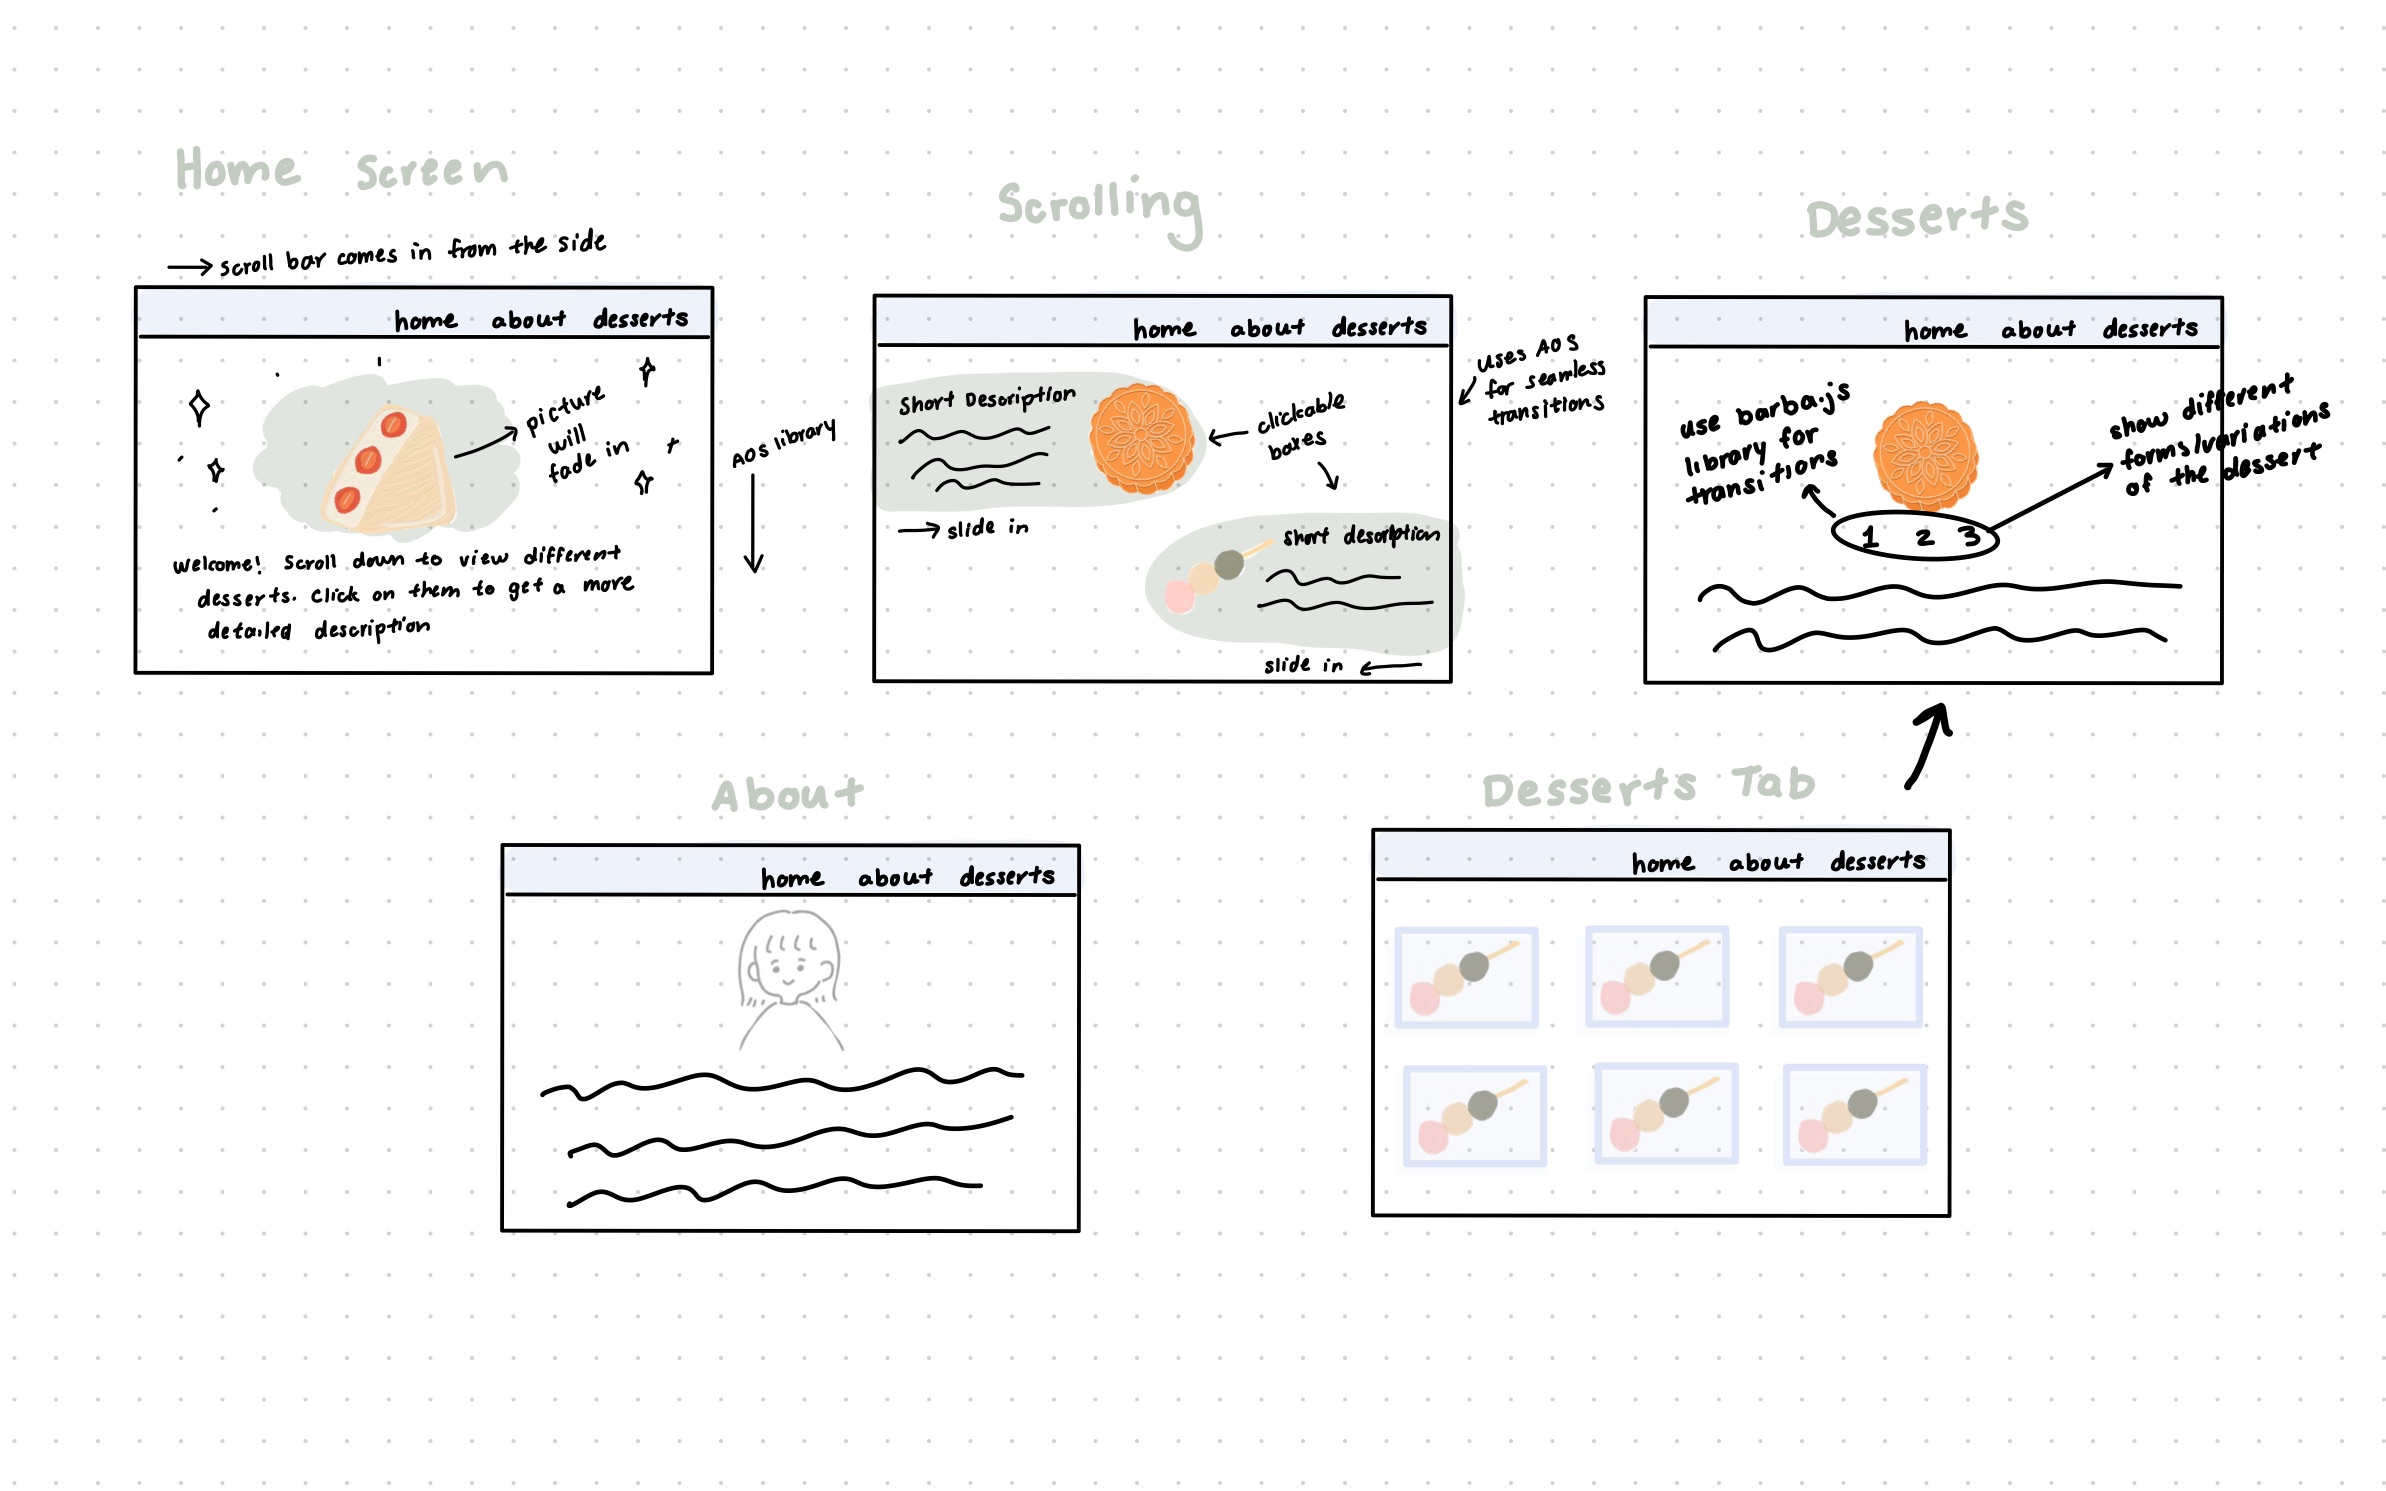 Home Screen
→ scroll bar comes in from the side
home about desserts
picture
will
fade in
Welcome! Scroll down to view different
desserts. Click on them to get a more
detailed description
AOS library
Scrolling
home about desserts
Short Description
clickable
boxes
→ slide in
short description
slide in ←
uses AOS
for seamless
transitions
Desserts
home about desserts
use barba.js
library for
transitions
show different
forms/variations
of the dessert
1 2 3
About
home about desserts
Desserts Tab
home about desserts